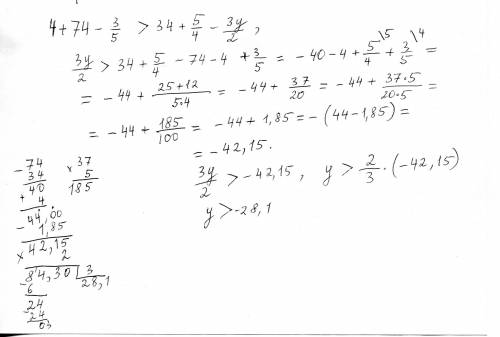 4+74 - 3/5 > 34 + 5/4 - 3y/2 ,
3y/2 > 34 + 5/4 - 74 - 4 + 3/5 = - 40 - 4 + 5/4 \5 + 3/5 \4 =
= - 44 + 25+12/5·4 = - 44 + 37/20 = - 44 + 37·5/20·5 =
= - 44 + 185/100 = - 44 + 1,85 = - (44 - 1,85) =
= - 42,15.
3y/2 > - 42,15 , y > 2/3 · (- 42,15)
y > -28,1
- 74
34
40
+ 4
- 44,00
1,85
× 42,15
2
84,30 | 3
28,1
- 6
24
- 24
03
× 37
5
185